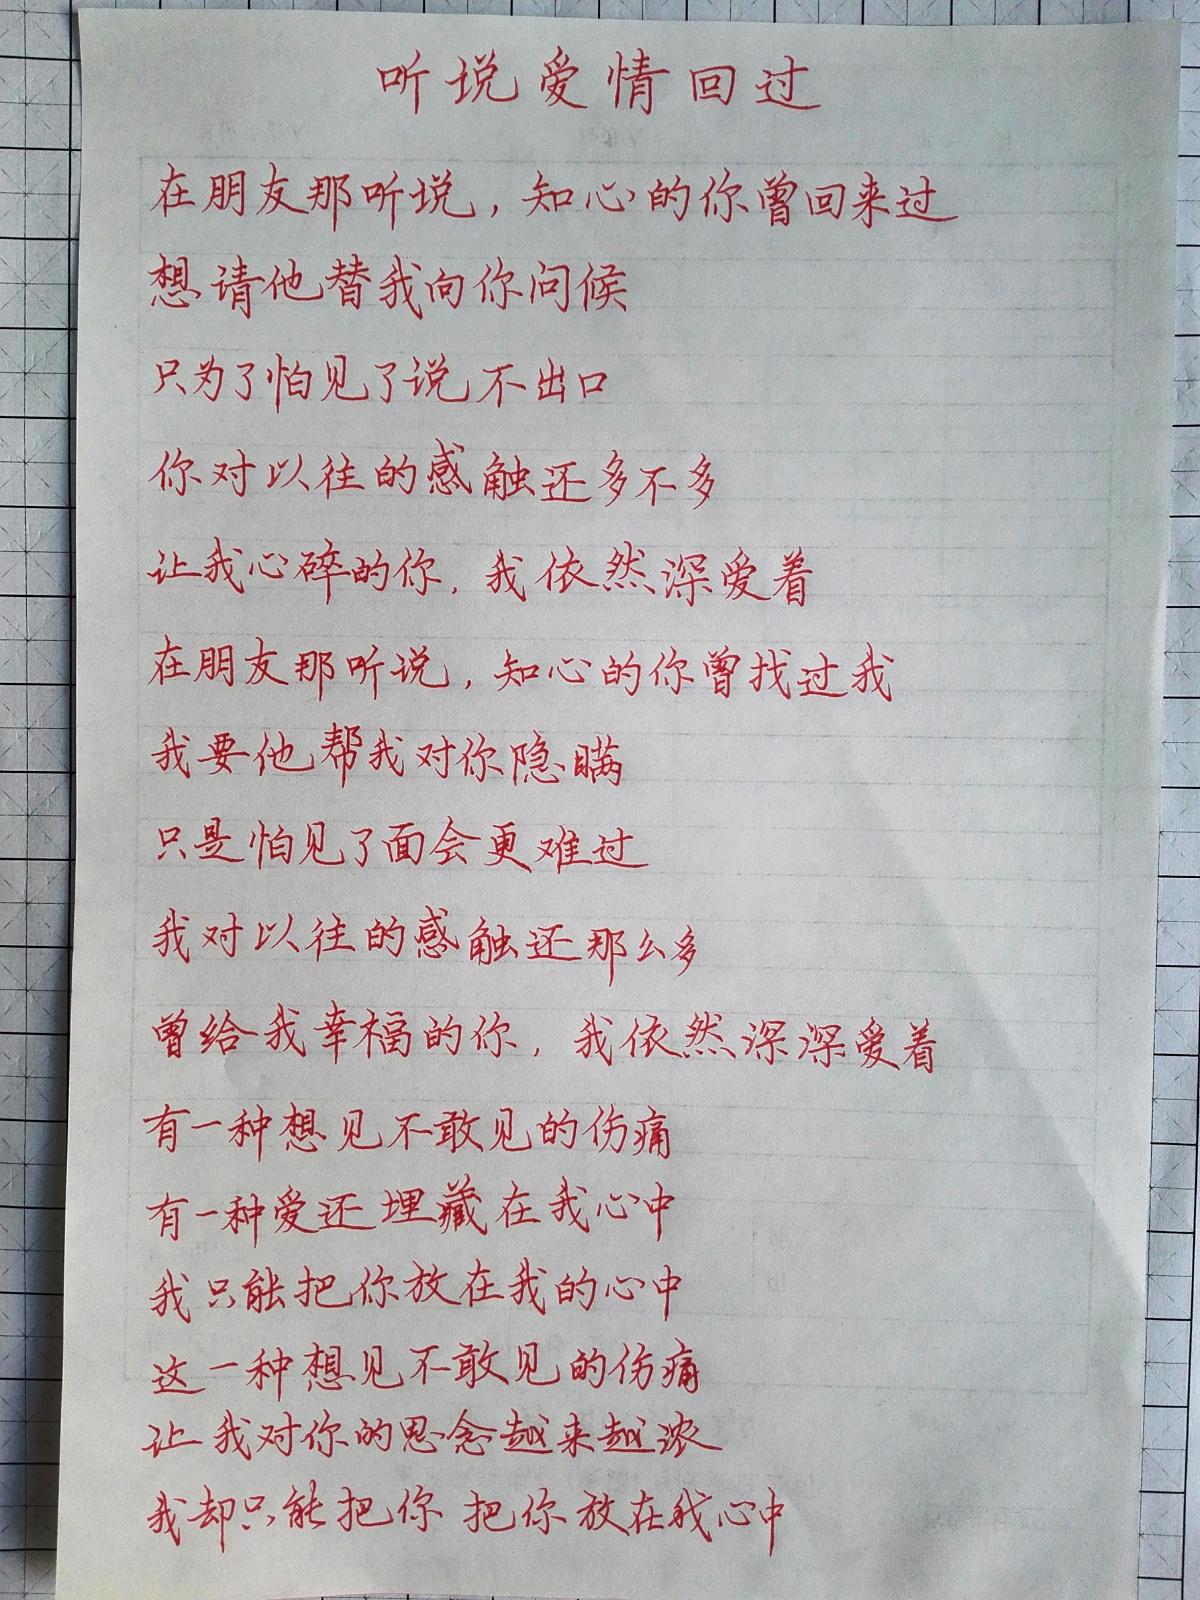 听说爱情回过
在朋友那听说，知心的你曾回来过
想请他替我向你问候
只为了怕见了说不出口
你对以往的感触还多不多
让我心碎的你，我依然深爱着
在朋友那听说，知心的你曾找过我
我要他帮我对你隐瞒
只是怕见了面会更难过
我对以往的感触还那么多
曾给我幸福的你，我依然深深爱着
有一种想见不敢见的伤痛
有一种爱还埋藏在我心中
我只能把你放在我的心中
这一种想见不敢见的伤痛
让我对你的思念越来越浓
我却只能把你 把你放在我心中